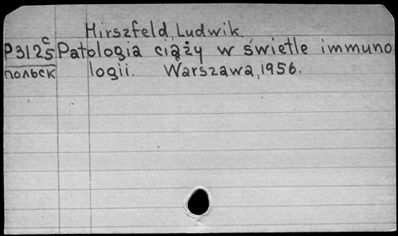 Hirszfeld, Ludwik.
c
P3125 Patologia ciąży w świetle immuno
польск logii. Warszawa, 1956.